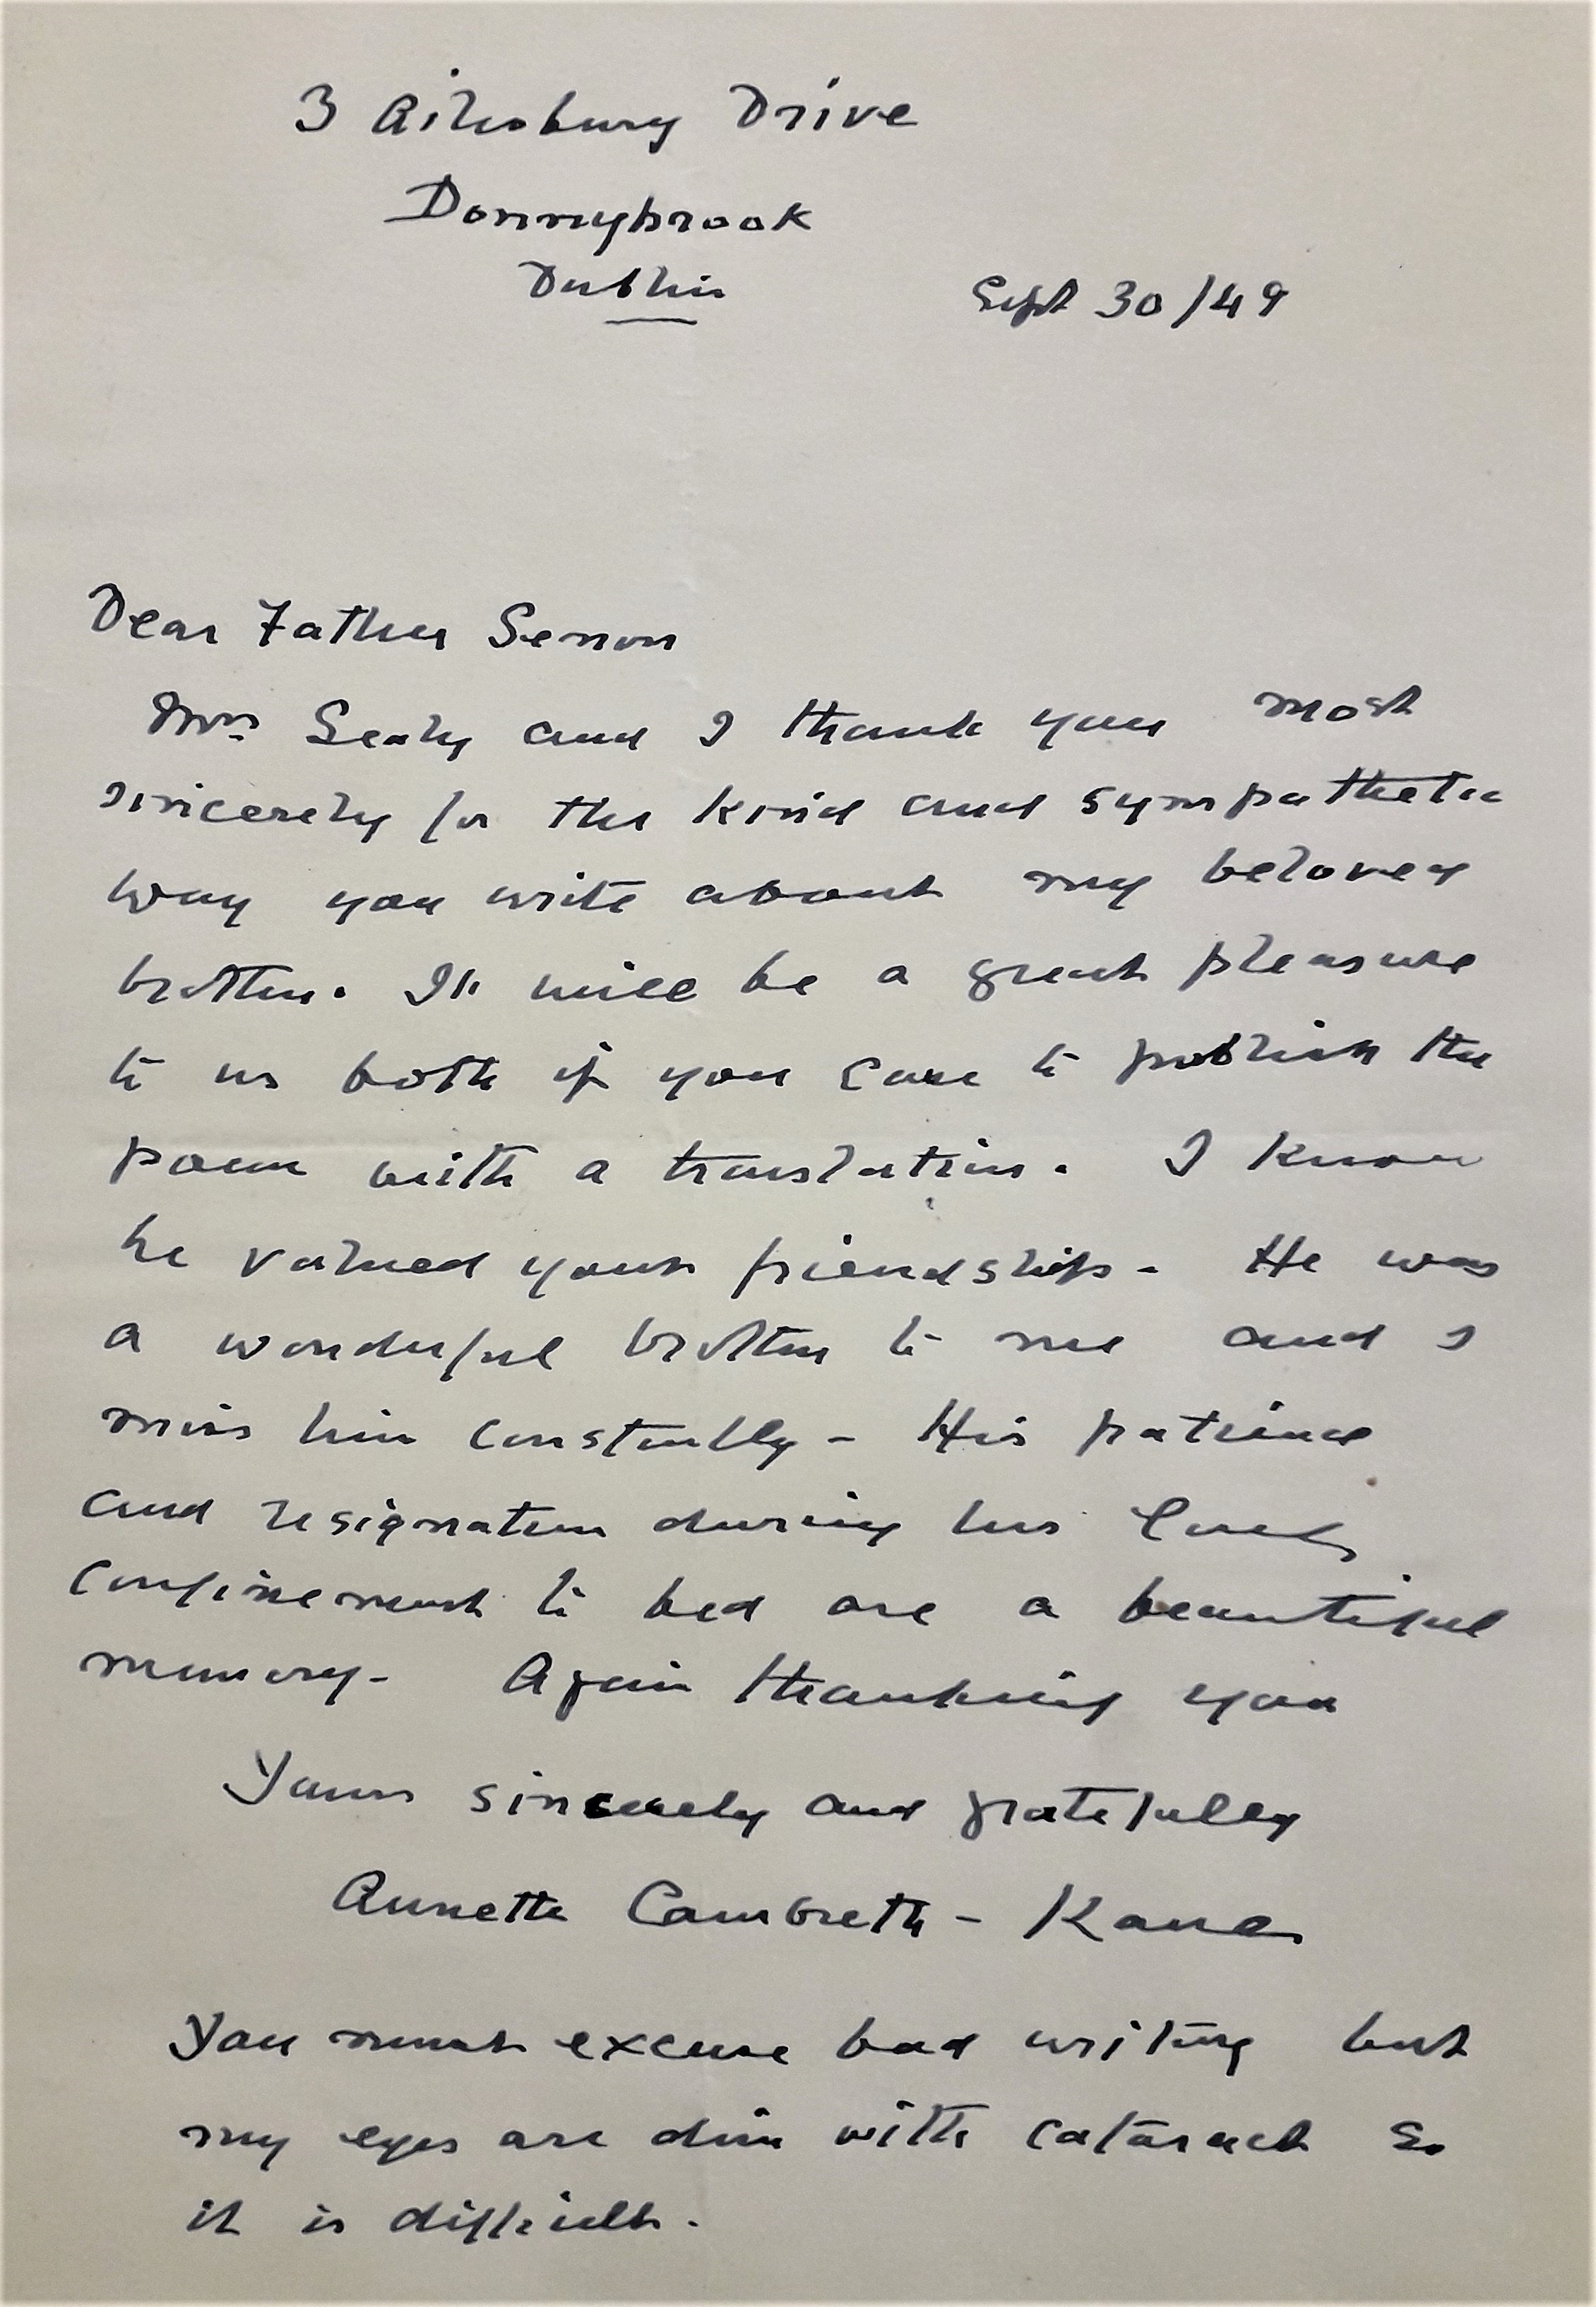 3 Ailesbury Drive
Donnybrook
Dublin
Sept 30/49
Dear Father Senan
Mrs Sealy and I thank you most
sincerely for the kind and sympathetic
way you write about my beloved
brother. It will be a great pleasure
to us both if you care to publish the
poem with a translation. I know
he valued your friendship - He was
a wonderful brother to me and I
miss him constantly - His patience
and resignation during his long
confinement to bed are a beautiful
memory - Again thanking you
Yours sincerely and gratefully
Annette Cambreth - Kane
You must excuse bad writing but
my eyes are dim with cataract so
it is difficult.